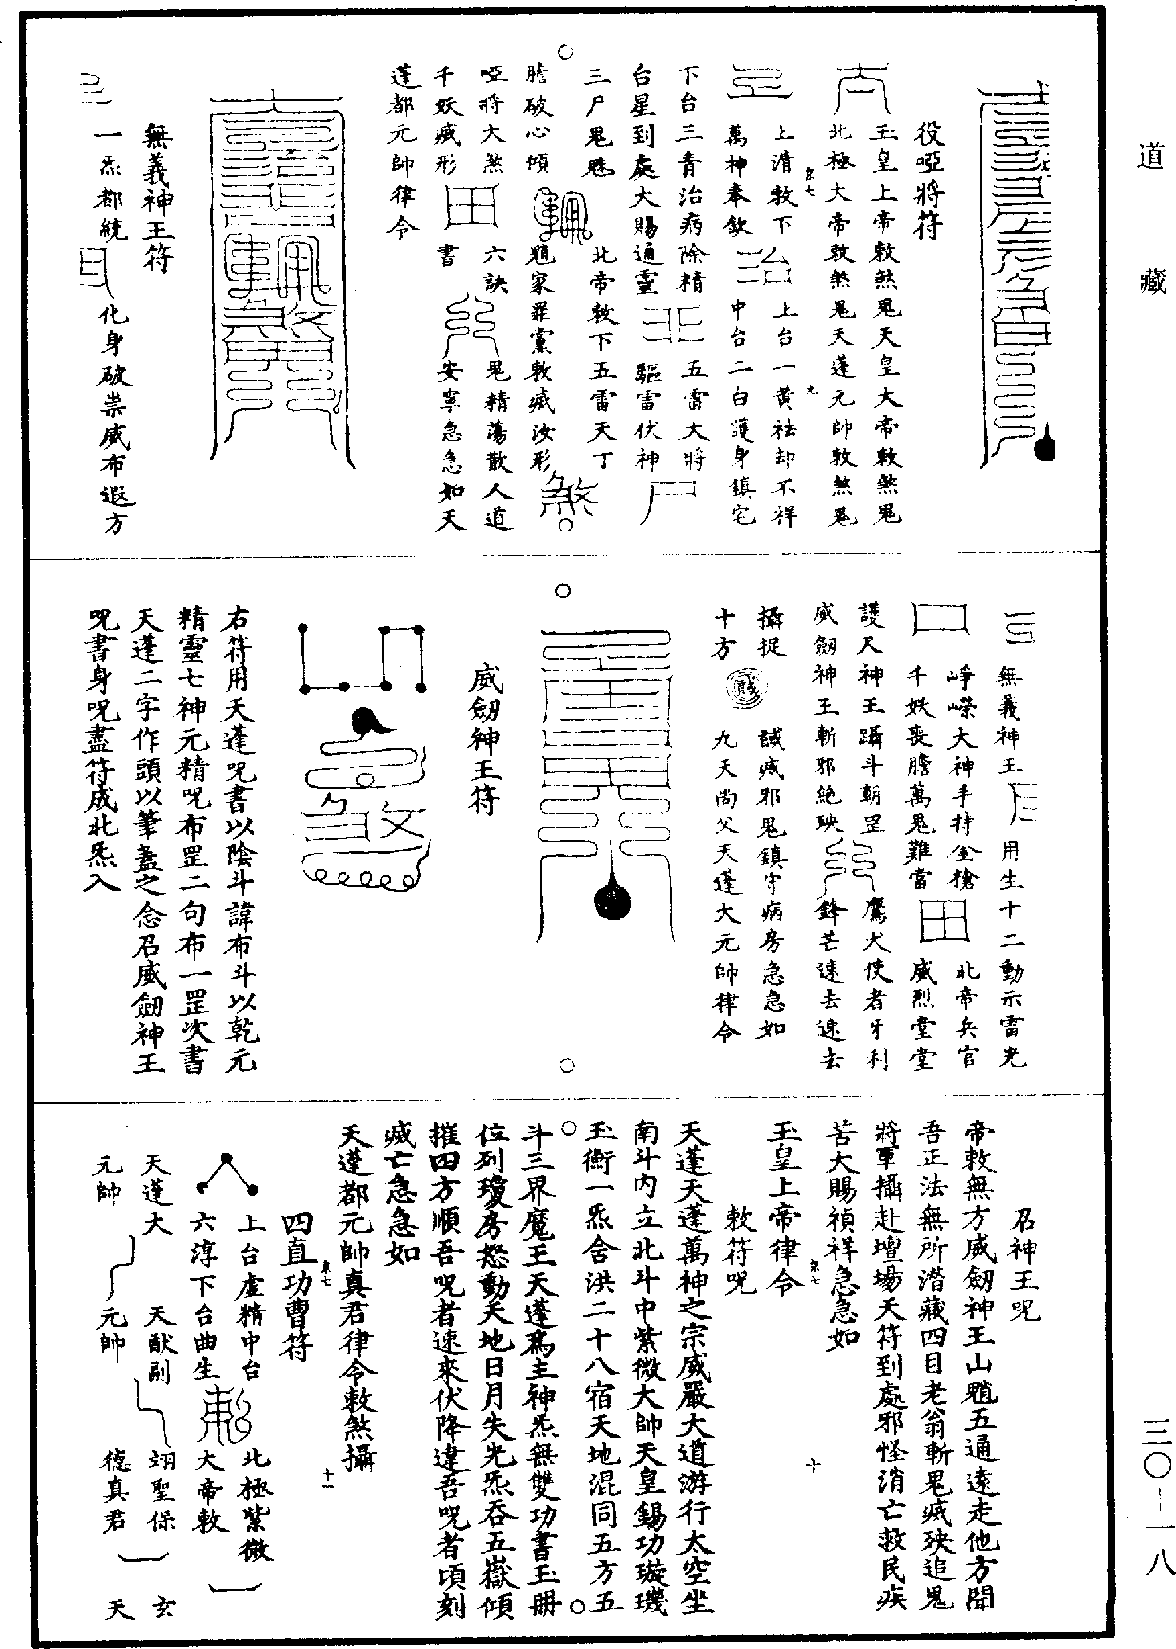 道藏
三〇—一八
役啞將符
玉皇上帝敕煞鬼天皇大帝敕煞鬼
北極大帝敕煞鬼天蓬元帥敕煞鬼
上清敕下
上台一黃祛却不祥
萬神奉欽
中台二白護身鎮宅
下台三青治病除精
五雷大將
台星到處大賜通靈
驅雷伏神
三尸鬼魅
北帝敕下五雷天丁
膽破心傾
魈家罪黨敕滅汝形
啞將大煞
六訣
鬼精蕩散人道
千妖滅形
書
安寧急急如天
蓬都元帥律令
無義神王符
一炁都統
化身破祟威布遐方
無義神王
用生十二動示雷光
崢嶸大神手持金槍
北帝兵官
千妖喪膽萬鬼難當
威烈堂堂
護天神王躡斗朝罡
鷹犬使者牙利
威劒神王斬邪絕殃
鋒芒速去速去
攝捉
誠滅邪鬼鎮守病房急急如
十方
九天尚父天蓬大元帥律令
威劒神王符
右符用天蓬呪書以陰斗諱布斗以乾元
精靈七神元精呪布罡二句布一罡次書
天蓬二字作頭以筆蓋之念召威劒神王
呪書身呪盡符成北炁入
召神王呪
帝敕無方威劒神王山魈五通遠走他方聞
吾正法無所潛藏四目老翁斬鬼滅殃追鬼
將軍攝赴壇場天符到處邪怪消亡救民疾
苦大賜禎祥急急如
玉皇上帝律令
敕符呪
天蓬天蓬萬神之宗威嚴大道游行太空坐
南斗內立北斗中紫微大帥天皇錫功璇璣
玉衡一炁含洪二十八宿天地混同五方五
斗三界魔王天蓬為主神炁無雙功書玉冊
位列瓊房怒動天地日月失光炁吞五嶽傾
摧四方順吾呪者速來伏降違吾呪者頃刻
滅亡急急如
天蓬都元帥真君律令敕煞攝
四直功曹符
上台虛精中台
北極紫微
六淳下台曲生
大帝敕
天蓬大
天猷副
翊聖保
玄
元帥
元帥
德真君
天